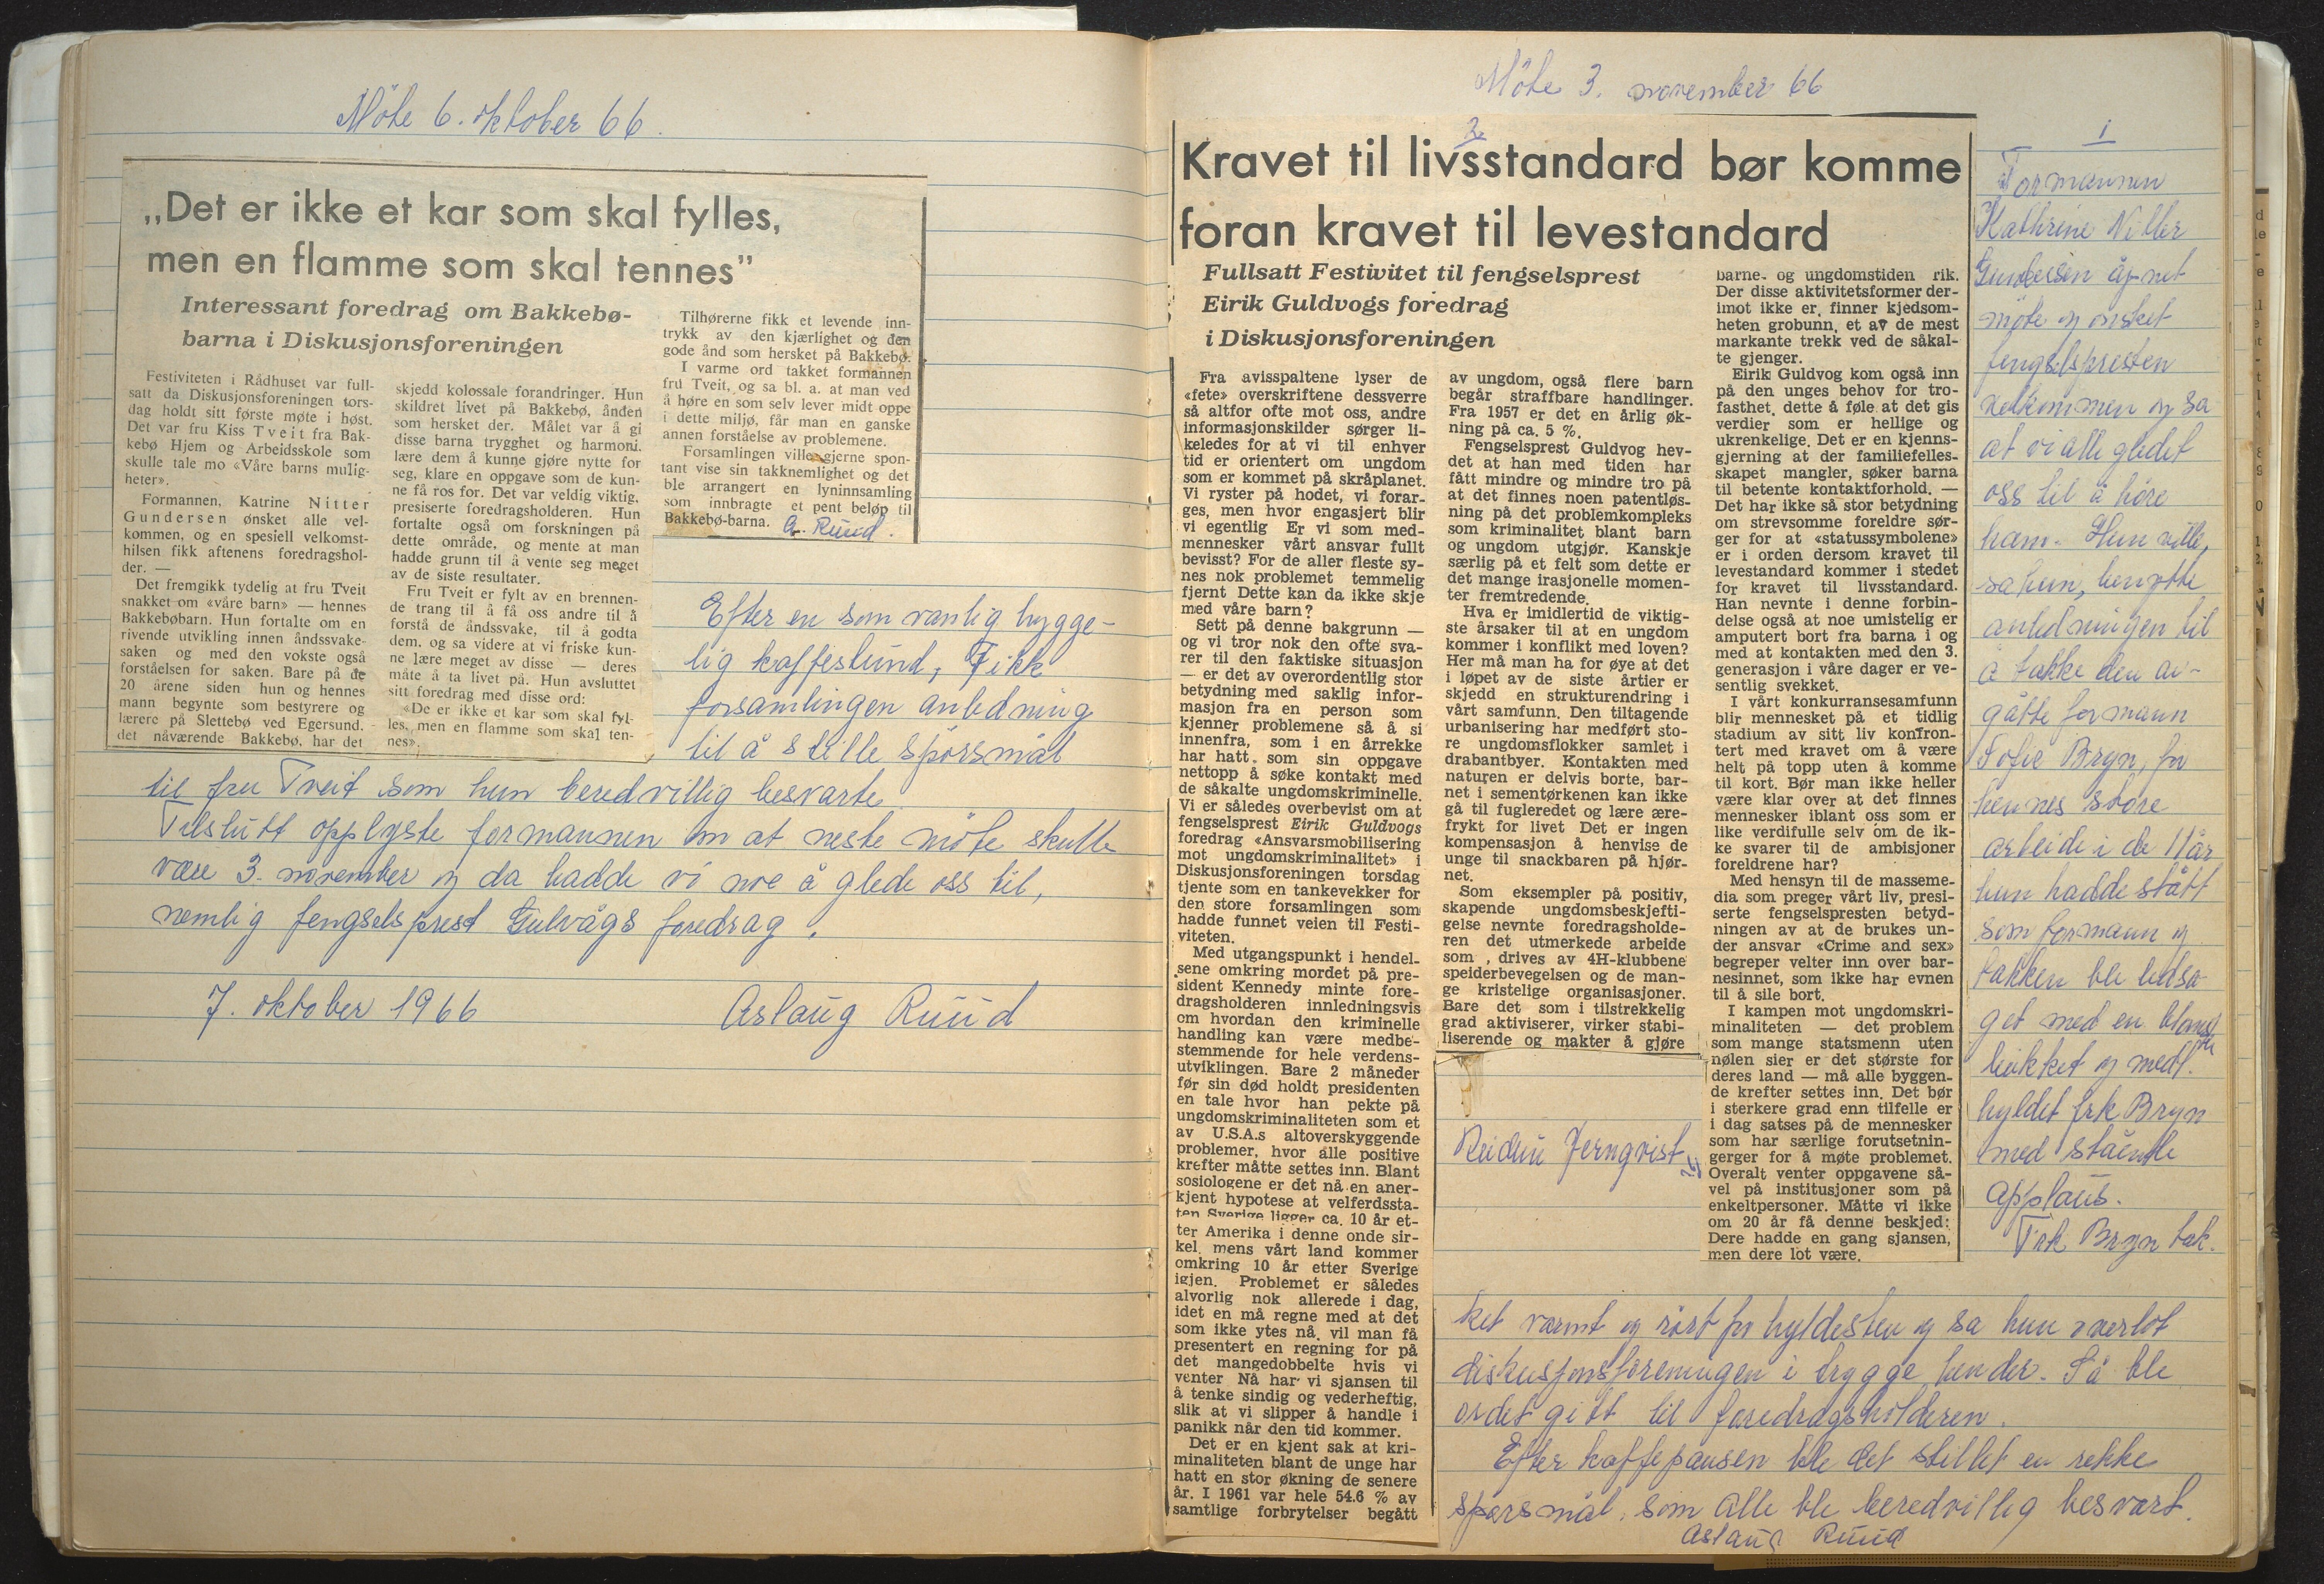 Möte 6. oktober 66.
„Det er ikke et kar som skal fylles,
men en flamme som skal tennes”
Interessant foredrag om Bakkebø-
barna i Diskusjonsforeningen
Festiviteten i Rådhuset var full-
satt da Diskusjonsforeningen tors-
dag holdt sitt første møte i høst.
Det var fru Kiss Tveit fra Bak-
kebø Hjem og Arbeidsskole som
skulle tale mo «Våre barns mulig-
heter».
Formannen, Katrine Nitter
Gundersen ønsket alle vel-
kommen, og en spesiell velkomst-
hilsen fikk aftenens foredragshol-
der. —
Det fremgikk tydelig at fru Tveit
snakket om «våre barn» — hennes
Bakkebøbarn. Hun fortalte om en
rivende utvikling innen åndssvake-
saken og med den vokste også
forståelsen for saken. Bare på de
20 årene siden hun og hennes
mann begynte som bestyrere og
lærere på Slettebø ved Egersund,
det nåværende Bakkebø, har det
skjedd kolossale forandringer. Hun
skildret livet på Bakkebø, ånden
som hersket der. Målet var å gi
disse barna trygghet og harmoni,
lære dem å kunne gjøre nytte for
seg, klare en oppgave som de kun-
ne få ros for. Det var veldig viktig,
presiserte foredragsholderen. Hun
fortalte også om forskningen på
dette område, og mente at man
hadde grunn til å vente seg meget
av de siste resultater.
Fru Tveit er fylt av en brennen-
de trang til å få oss andre til å
forstå de åndssvake, til å godta
dem, og sa videre at vi friske kun-
ne lære meget av disse — deres
måte å ta livet på. Hun avsluttet
sitt foredrag med disse ord:
«De er ikke et kar som skal fyl-
les, men en flamme som skal ten-
nes».
Tilhørerne fikk et levende inn-
trykk av den kjærlighet og den
gode ånd som hersket på Bakkebø.
I varme ord takket formannen
fru Tveit, og sa bl. a. at man ved
å høre en som selv lever midt oppe
i dette miljø, får man en ganske
annen forståelse av problemene.
Forsamlingen ville gjerne spon-
tant vise sin takknemlighet og det
ble arrangert en lyninnsamling
som innbragte et pent beløp til
Bakkebø-barna. A. Ruud.
Efter en som vanlig hygge-
lig kaffestund, fikk
forsamlingen anledning
til å stille spörsmål
til fru Tveit som hun beredvillig besvarte.
Tilslutt opplyste formannen om at neste möte skulle
være 3. november og da hadde vi noe å glede oss til,
nemlig fengselsprest Gulvågs foredrag.
7. oktober 1966 Aslaug Ruud
Möte 3. november 66
2
Kravet til livsstandard bør komme
foran kravet til levestandard
Fullsatt Festivitet til fengselsprest
Eirik Guldvogs foredrag
i Diskusjonsforeningen
Fra avisspaltene lyser de
«fete» overskriftene dessverre
så altfor ofte mot oss, andre
informasjonskilder sørger li-
keledes for at vi til enhver
tid er orientert om ungdom
som er kommet på skråplanet.
Vi ryster på hodet, vi forar-
ges, men hvor engasjert blir
vi egentlig Er vi som med-
mennesker vårt ansvar fullt
bevisst? For de aller fleste sy-
nes nok problemet temmelig
fjernt Dette kan da ikke skje
med våre barn?
Sett på denne bakgrunn —
og vi tror nok den ofte sva-
rer til den faktiske situasjon
— er det av overordentlig stor
betydning med saklig infor-
masjon fra en person som
kjenner problemene så å si
innenfra, som i en årrekke
har hatt som sin oppgave
nettopp å søke kontakt med
de såkalte ungdomskriminelle.
Vi er således overbevist om at
fengselsprest Eirik Guldvogs
foredrag «Ansvarsmobilisering
mot ungdomskriminalitet» i
Diskusjonsforeningen torsdag
tjente som en tankevekker for
den store forsamlingen som
hadde funnet veien til Festi-
viteten.
Med utgangspunkt i hendel-
sene omkring mordet på pre-
sident Kennedy minte fore-
dragsholderen innledningsvis
om hvordan den kriminelle
handling kan være medbe-
stemmende for hele verdens-
utviklingen. Bare 2 måneder
før sin død holdt presidenten
en tale hvor han pekte på
ungdomskriminaliteten som et
av U.S.A.s altoverskyggende
problemer, hvor alle positive
krefter måtte settes inn. Blant
sosiologene er det nå en aner-
kjent hypotese at velferdssta-
ten Sverige ligger ca. 10 år et-
ter Amerika i denne onde sir-
kel, mens vårt land kommer
omkring 10 år etter Sverige
igjen. Problemet er således
alvorlig nok allerede i dag,
idet en må regne med at det
som ikke ytes nå, vil man få
presentert en regning for på
det mangedobbelte hvis vi
venter Nå har vi sjansen til
å tenke sindig og vederheftig,
slik at vi slipper å handle i
panikk når den tid kommer.
Det er en kjent sak at kri-
minaliteten blant de unge har
hatt en stor økning de senere
år. I 1961 var hele 54.6 % av
samtlige forbrytelser begått
av ungdom, også flere barn
begår straffbare handlinger.
Fra 1957 er det en årlig øk-
ning på ca. 5 %.
Fengselsprest Guldvog hev-
det at han med tiden har
fått mindre og mindre tro på
at det finnes noen patentløs-
ning på det problemkompleks
som kriminalitet blant barn
og ungdom utgjør. Kanskje
særlig på et felt som dette er
det mange irasjonelle momen-
ter fremtredende.
Hva er imidlertid de viktig-
ste årsaker til at en ungdom
kommer i konflikt med loven?
Her må man ha for øye at det
i løpet av de siste årtier er
skjedd en strukturendring i
vårt samfunn. Den tiltagende
urbanisering har medført sto-
re ungdomsflokker samlet i
drabantbyer. Kontakten med
naturen er delvis borte, bar-
net i sementørkenen kan ikke
gå til fugleredet og lære ære-
frykt for livet Det er ingen
kompensasjon å henvise de
unge til snackbaren på hjør-
net.
Som eksempler på positiv,
skapende ungdomsbeskjefti-
gelse nevnte foredragsholde-
ren det utmerkede arbeide
som , drives av 4H-klubbene
speiderbevegelsen og de man-
ge kristelige organisasjoner.
Bare det som i tilstrekkelig
grad aktiviserer, virker stabi-
liserende og makter å gjøre
barne- og ungdomstiden rik.
Der disse aktivitetsformer der-
imot ikke er, finner kjedsom-
heten grobunn, et av de mest
markante trekk ved de såkal-
te gjenger.
Eirik Guldvog kom også inn
på den unges behov for tro-
fasthet, dette å føle at det gis
verdier som er hellige og
ukrenkelige. Det er en kjenns-
gjerning at der familiefelles-
skapet mangler, søker barna
til betente kontaktforhold. —
Det har ikke så stor betydning
om strevsomme foreldre sør-
ger for at «statussymbolene»
er i orden dersom kravet til
levestandard kommer i stedet
for kravet til livsstandard.
Han nevnte i denne forbin-
delse også at noe umistelig er
amputert bort fra barna i og
med at kontakten med den 3.
generasjon i våre dager er ve-
sentlig svekket.
I vårt konkurransesamfunn
blir mennesket på et tidlig
stadium av sitt liv konfron-
tert med kravet om å være
helt på topp uten å komme
til kort. Bør man ikke heller
være klar over at det finnes
mennesker iblant oss som er
like verdifulle selv om de ik-
ke svarer til de ambisjoner
foreldrene har?
Med hensyn til de masseme-
dia som preger vårt liv, presi-
serte fengselspresten betyd-
ningen av at de brukes un-
der ansvar «Crime and sex»
begreper velter inn over bar-
nesinnet, som ikke har evnen
til å sile bort.
I kampen mot ungdomskri-
minaliteten — det problem
som mange statsmenn uten
nølen sier er det største for
deres land — må alle byggen-
de krefter settes inn. Det bør
i sterkere grad enn tilfelle er
i dag satses på de mennesker
som har særlige forutsetnin-
gerger for å møte problemet.
Overalt venter oppgavene så-
vel på institusjoner som på
enkeltpersoner. Måtte vi ikke
om 20 år få denne beskjed:
Dere hadde en gang sjansen,
men dere lot være.
Reidun Jernqvist
1
Formannen
Kathrine Nitter
Gundersen åpnet
möte og ønsket
fengselspresten
velkommen og sa
at vi alle gledet
oss til å höre
ham. Hun ville,
sa hun, benytte
anledningen til
å takke den av-
gåtte formann
Sofie Bryn, for
hennes store
arbeide i de 11 år
hun hadde stått
som formann og
takken ble ledsa-
get med en blomster
bukket og medl.
hyldet frk Bryn
med stående
applaus.
Frk Bryn tak-
ket varmt og rört for hyldesten og sa hun overlot
diskusjonsforeningen i trygge hender. Så ble
ordet gitt til foredragsholderen.
Efter kaffepausen ble det stillet en rekke
spørsmål, som alle ble beredvillig besvart.
Aslaug Ruud